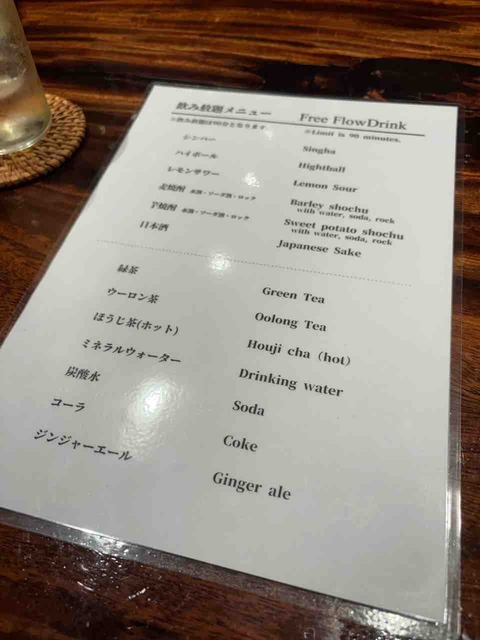 飲み放題メニュー Free FlowDrink
※飲み放題は90分となります。 ※Limit is 90 minutes.
シンハー Singha
ハイボール Highball
レモンサワー Lemon Sour
麦焼酎 水割・ソーダ割・ロック Barley shochu
with water, soda, rock
芋焼酎 水割・ソーダ割・ロック Sweet potato shochu
with water, soda, rock
日本酒 Japanese Sake
緑茶 Green Tea
ウーロン茶 Oolong Tea
ほうじ茶(ホット) Houji cha (hot)
ミネラルウォーター Drinking water
炭酸水 Soda
コーラ Coke
ジンジャーエール Ginger ale